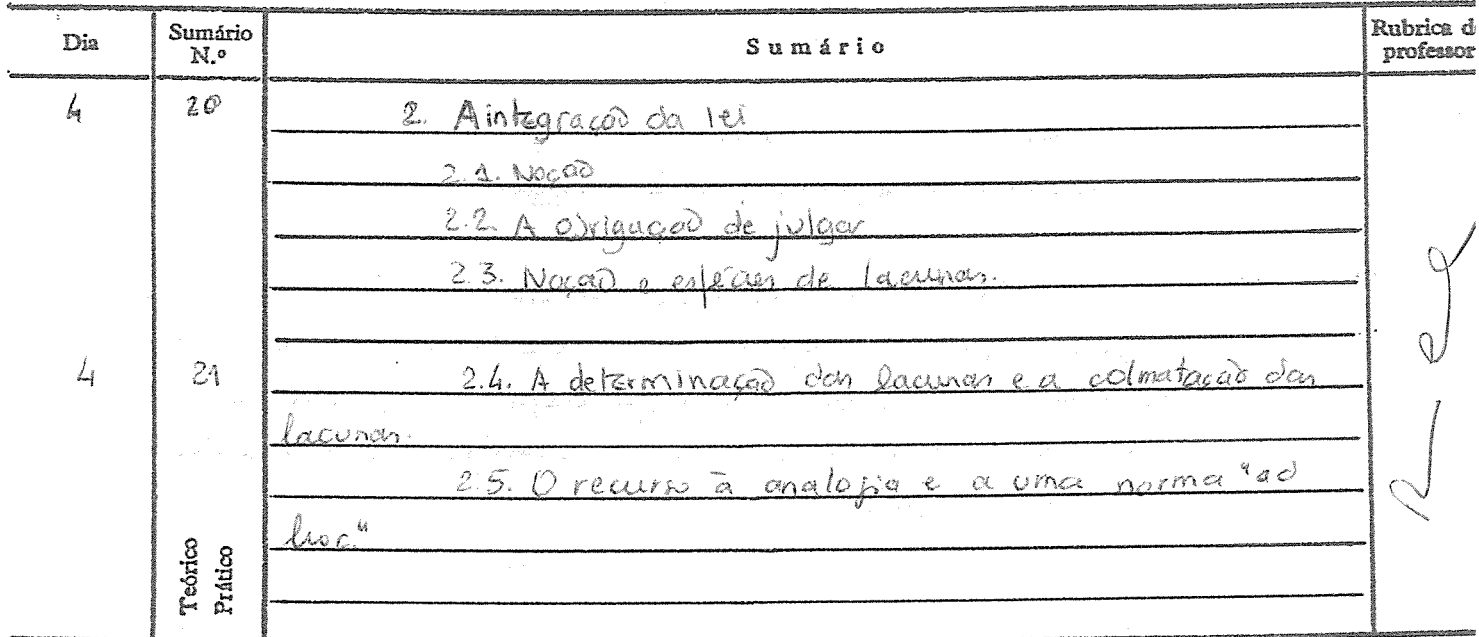 Dia Sumário N.º Sumário Rubrica d professor
4 20 2. A integração da lei
2.1. Noção
2.2. A obrigação de julgar
2.3. Noção e espécies de lacunas.
4 21 2.4. A determinação das lacunas e a colmatação das
lacunas.
2.5. O recurso à analogia e a uma norma "ad
hoc."
Teórico
Prático